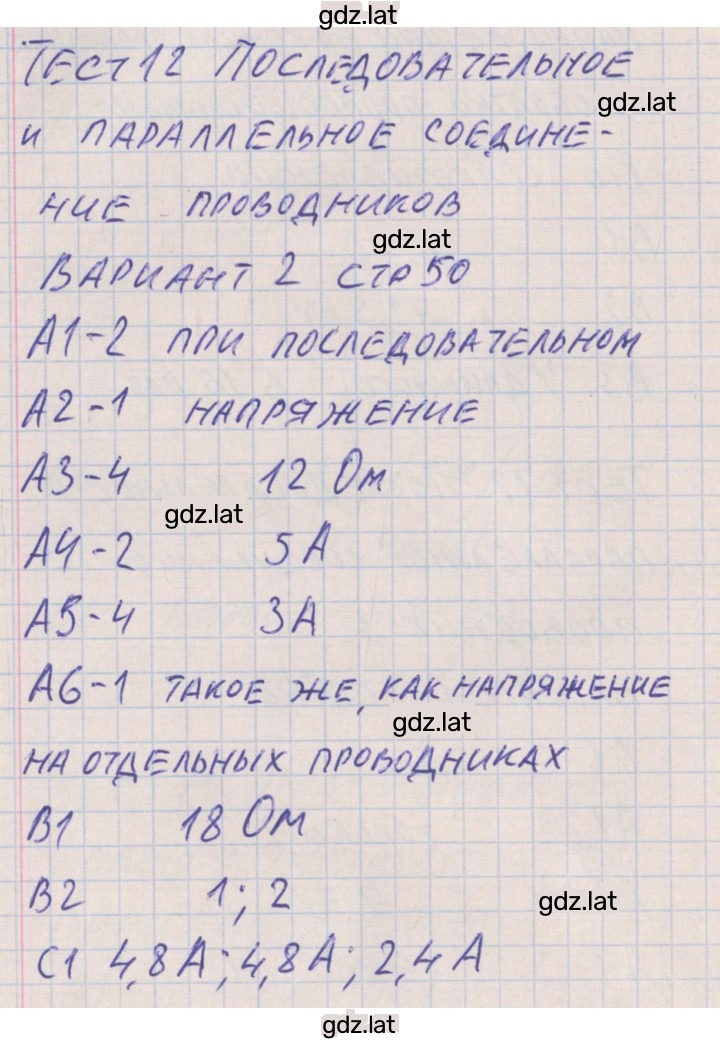 gdz.lat
ТЕСТ 12 ПОСЛЕДОВАТЕЛЬНОЕ
gdz.lat
И ПАРАЛЛЕЛЬНОЕ СОЕДИНЕ-
НИЕ ПРОВОДНИКОВ
gdz.lat
ВАРИАНТ 2 СТР 50
А1-2 ПРИ ПОСЛЕДОВАТЕЛЬНОМ
А2-1 НАПРЯЖЕНИЕ
А3-4 12 Ом
gdz.lat
А4-2 5 А
А5-4 3А
А6-1 ТАКОЕ ЖЕ, КАК НАПРЯЖЕНИЕ
gdz.lat
НА ОТДЕЛЬНЫХ ПРОВОДНИКАХ
В1 18 Ом
В2 1; 2
gdz.lat
С1 4,8 А; 4,8 А; 2,4 А
gdz.lat